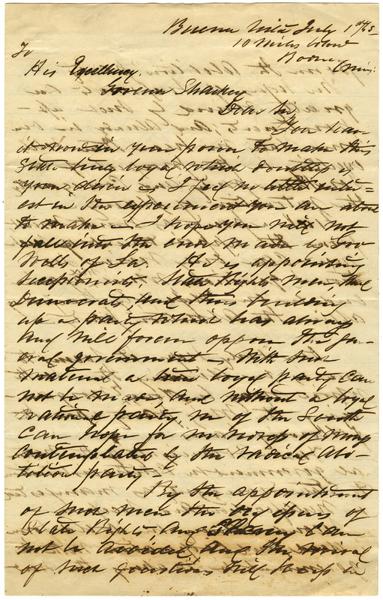 Buena Vista July 1st 1865
10 Miles
Miss:
To
His Excellency
Governor Sharkey
Dear Sir
You have
it now in your power to make this
State truly loyal, which doubtless is
your desire — I feel no little inter-
est in the experiment you are about
to make — I hope you will not
fall into the error made by Gov
Wells of La. He is appointing
secessionists, State Rights men, and
Democrats, and thus building
up a party which has always
and will forever oppose the gen-
eral government — With such
material a true loyal party can
not be made, and without a loyal
party we of the South
can hope for
contemplated by the radical abo-
lition party
By the appointment
of such men the
of State Rights, and Slavery can
not be avoided, and the
of such questions will keep